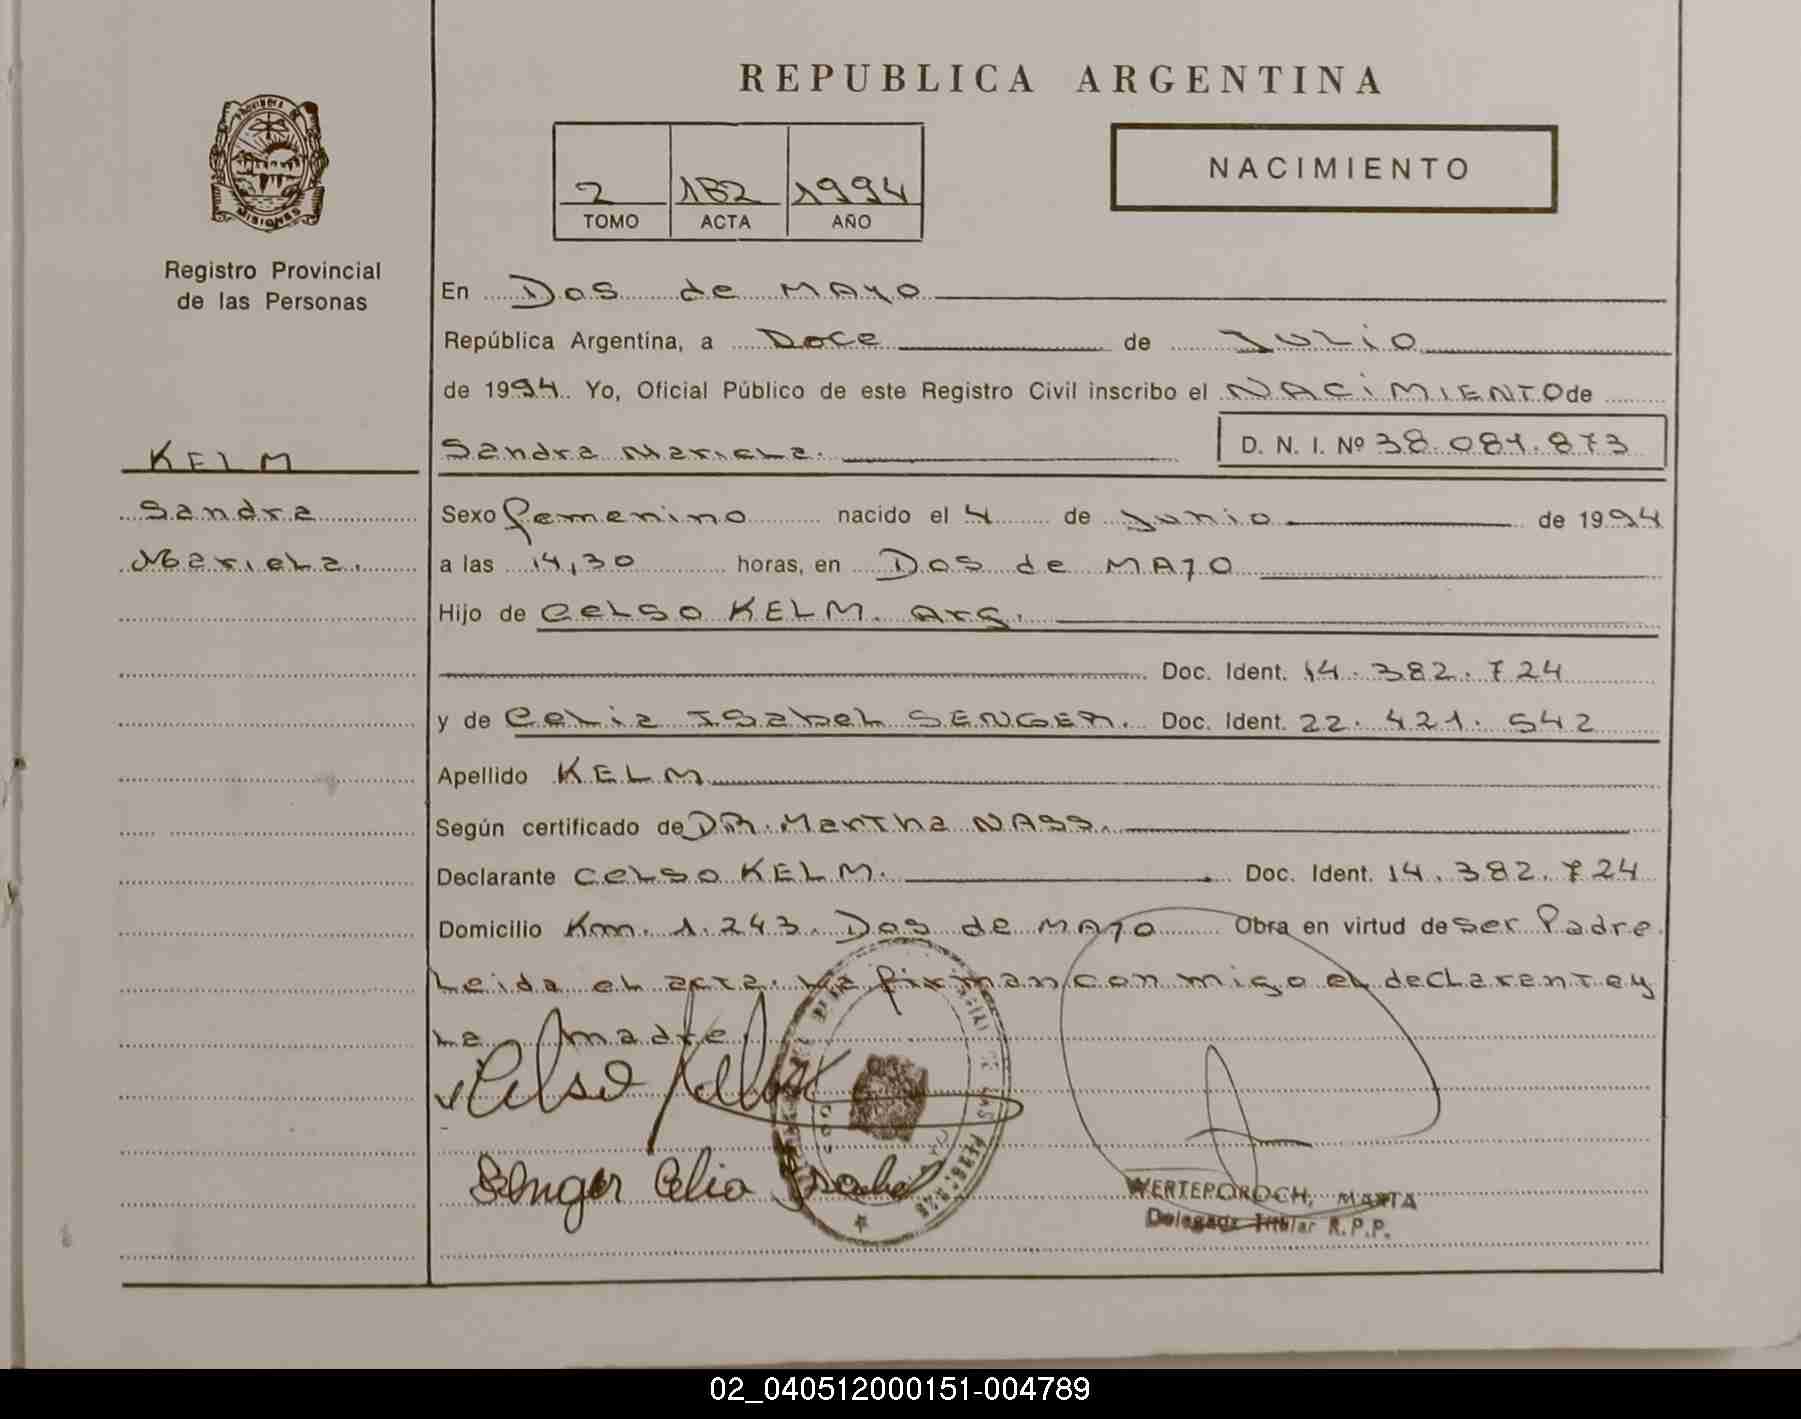 REPUBLICA ARGENTINA
MISIONES
Registro Provincial
de las Personas
2 182 1994
TOMO ACTA AÑO
NACIMIENTO
KELM
Sandra
Mariela.
En Dos de MAYO
República Argentina, a Doce de Julio
de 1994. Yo, Oficial Público de este Registro Civil inscribo el NACIMIENTO de
Sandra Mariela. D. N. I. Nº 38.081.873
Sexo femenino nacido el 4 de Junio de 1994
a las 14,30 horas, en Dos de MAYO
Hijo de Celso KELM. Arg.
Doc. Ident. 14.382.724
y de Celia Isabel SENGER. Doc. Ident. 22.421.542
Apellido KELM
Según certificado de DR. Martha NASS.
Declarante Celso KELM. Doc. Ident. 14.382.724
Domicilio Km. 1.243. Dos de MAYO Obra en virtud de ser Padre.
Leida el acta. La firman con migo el declarente y
La madre
Celso Kelm
Senger Celia Isabel
WERTEPOROCH, MARTA
Delegada Titular R.P.P.
02_040512000151-004789